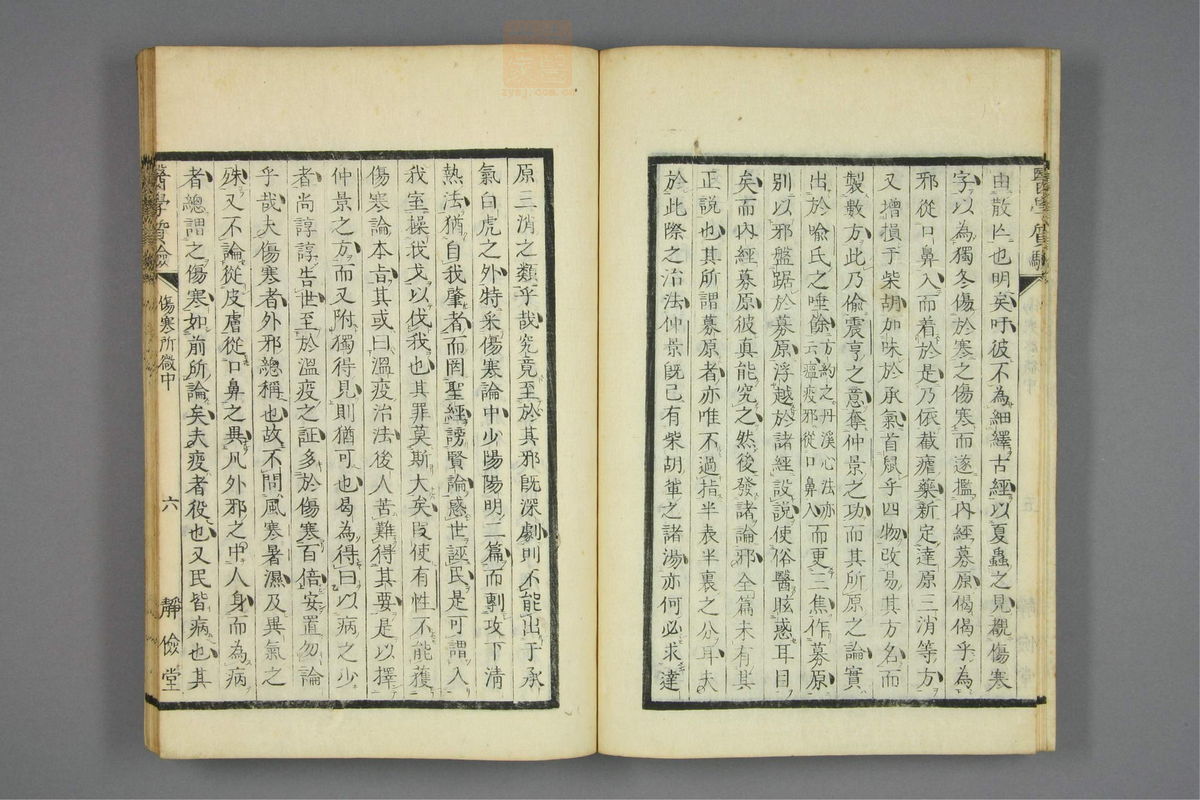 由散亾也明矣吁彼不為細繹古經以夏蟲之見觀傷寒
字以為獨冬傷於寒之傷寒而遂濫內經募原偈偈乎為
邪從口鼻入而着於是乃依截瘧藥新定達原三消等方
又增損于柴胡加味於承氣首鼠乎四物改易其方名而
製數方此乃偷震亨之意奪仲景之功而其所原之論實
出於喻氏之唾餘方約之丹溪心法亦云瘟疫邪從口鼻入而更三焦作募原
別以邪盤踞於募原浮越於諸經設說使俗醫眩惑耳目
矣而內經募原彼真能究之然後發諸論邪全篇未有其
正說也其所謂募原者亦唯不過指半表半裏之分耳夫
於此際之治法仲景既已有柴胡輩之諸湯亦何必求達
原三消之類乎哉究竟至於其邪既深劇則不能出于承
氣白虎之外特采傷寒論中少陽陽明二篇而剽攻下清
熱法猶自我肇者而罔聖經謗賢論惑世誣民是可謂入
我室操我戈以伐我也其罪莫斯大矣叚使有性不能獲
傷寒論本旨其或曰溫疫治法後人苦難得其要是以擇
仲景之方而又附獨得見則猶可也曷為得曰以病之少
者尚諄諄告世至於溫疫之証多於傷寒百倍安置勿論
乎哉大傷寒者外邪總稱也故不問風寒暑濕及異氣之
殊又不論從皮膚從口鼻之異凡外邪之中人身而為病
者總謂之傷寒如前所論矣夫疫者役也又民皆病也其
醫學質驗
傷寒所徵中
六
靜儉堂